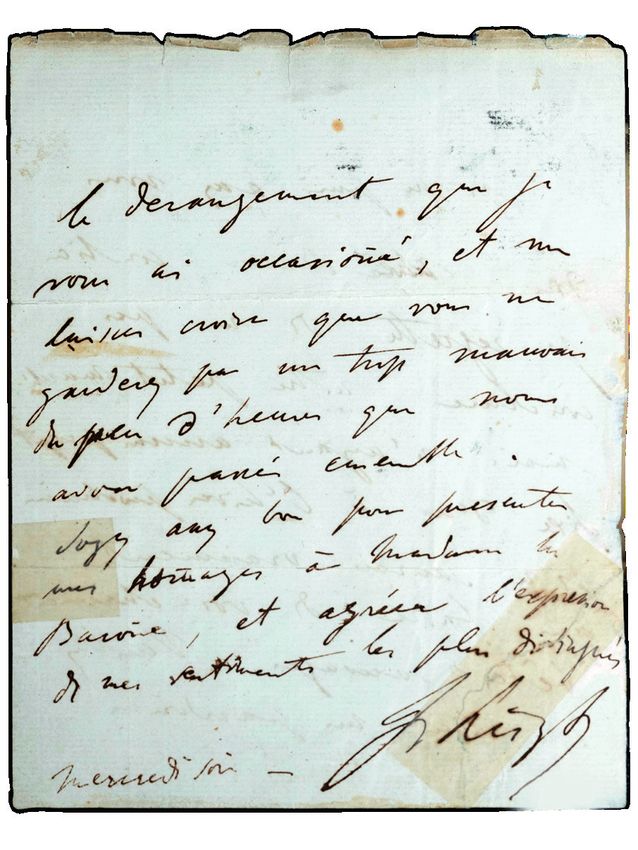 le derangement que je
vous ai occasioñé, et me
laisser croire que vous ne
garderez pas un trop mauvais
du peu d'heures que nous
avons passés ensemble.
Soyez assez bon pour presenter
mes hom̃ages à Madame la
Baroñe, et agréer l'expression
de mes sentiments les plus distingués
F Liszt
mercredi soir —